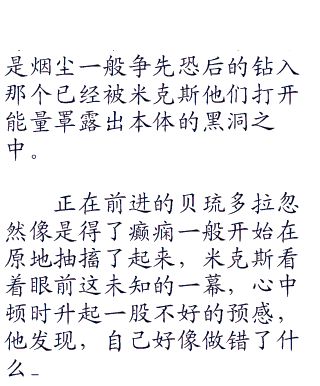 是烟尘一般争先恐后的钻入
那个已经被米克斯他们打开
能量罩露出本体的黑洞之
中。
正在前进的贝琉多拉忽
然像是得了癫痫一般开始在
原地抽搐了起来，米克斯看
着眼前这未知的一幕，心中
顿时升起一股不好的预感，
他发现，自己好像做错了什
么_